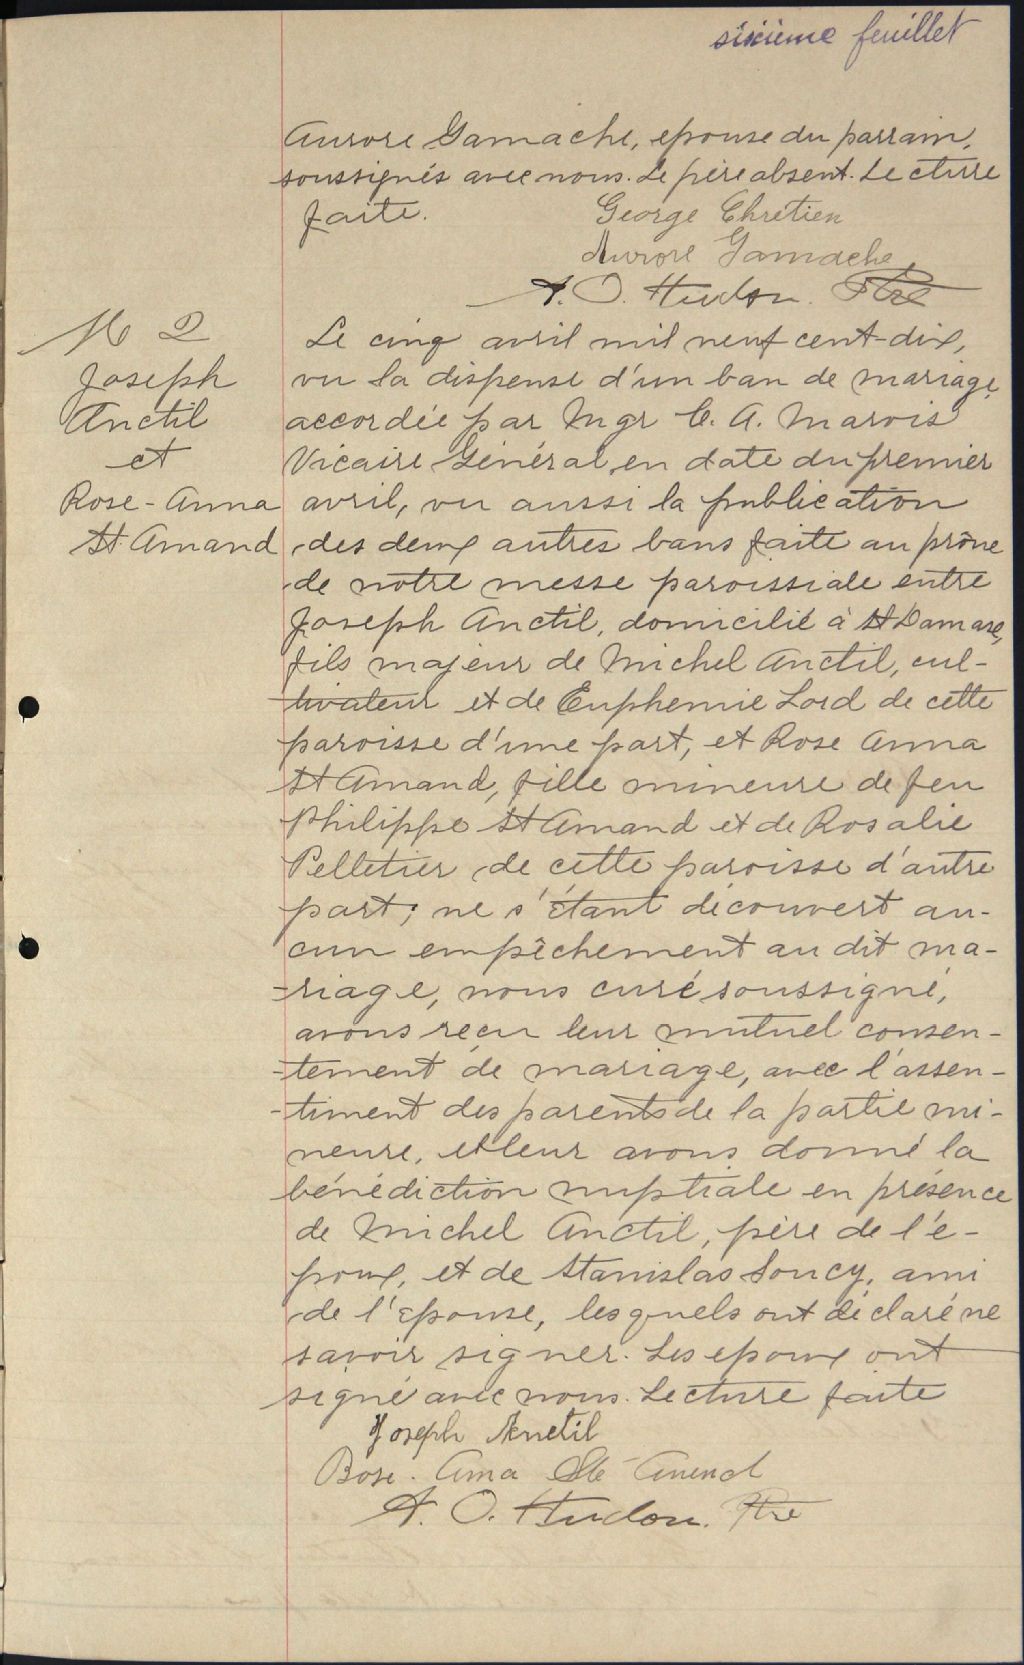 sixième feuillet
Aurore Gamache, epouse du parrain,
soussignés avec nous. Le père absent. Lecture
faite.
George Chrétien
Aurore Gamache
A. O. Hudon. Ptre
M 2
Joseph
Anctil
et
Rose-Anna
St. Amand
Le cinq avril mil neuf cent-dix,
vu la dispense d'un ban de mariage
accordée par Mgr C. A. Marois
Vicaire Général, en date du premier
avril, vu aussi la publication
des deux autres bans faite au prône
de notre messe paroissiale entre
Joseph Anctil, domicilié à St Damase,
fils majeur de Michel Anctil, cul-
tivateur et de Euphemie Lord de cette
paroisse d'une part, et Rose Anna
St Amand, fille mineure de feu
Philippe St Amand et de Rosalie
Pelletier de cette paroisse d'autre
part; ne s'étant découvert au-
cun empêchement au dit ma-
-riage, nous curé soussigné,
avons reçu leur mutuel consen-
-tement de mariage, avec l'assen-
-timent des parents de la partie mi-
neure, et leur avons donné la
bénédiction nuptiale en présence
de Michel Anctil, père de l'é-
poux, et de Stanislas Soucy, ami
de l'épouse, lesquels ont déclaré ne
savoir signer. Les epoux ont
signé avec nous. Lecture faite
Joseph Anctil
Rose. Anna St Amend
A. O. Hudon. Ptre